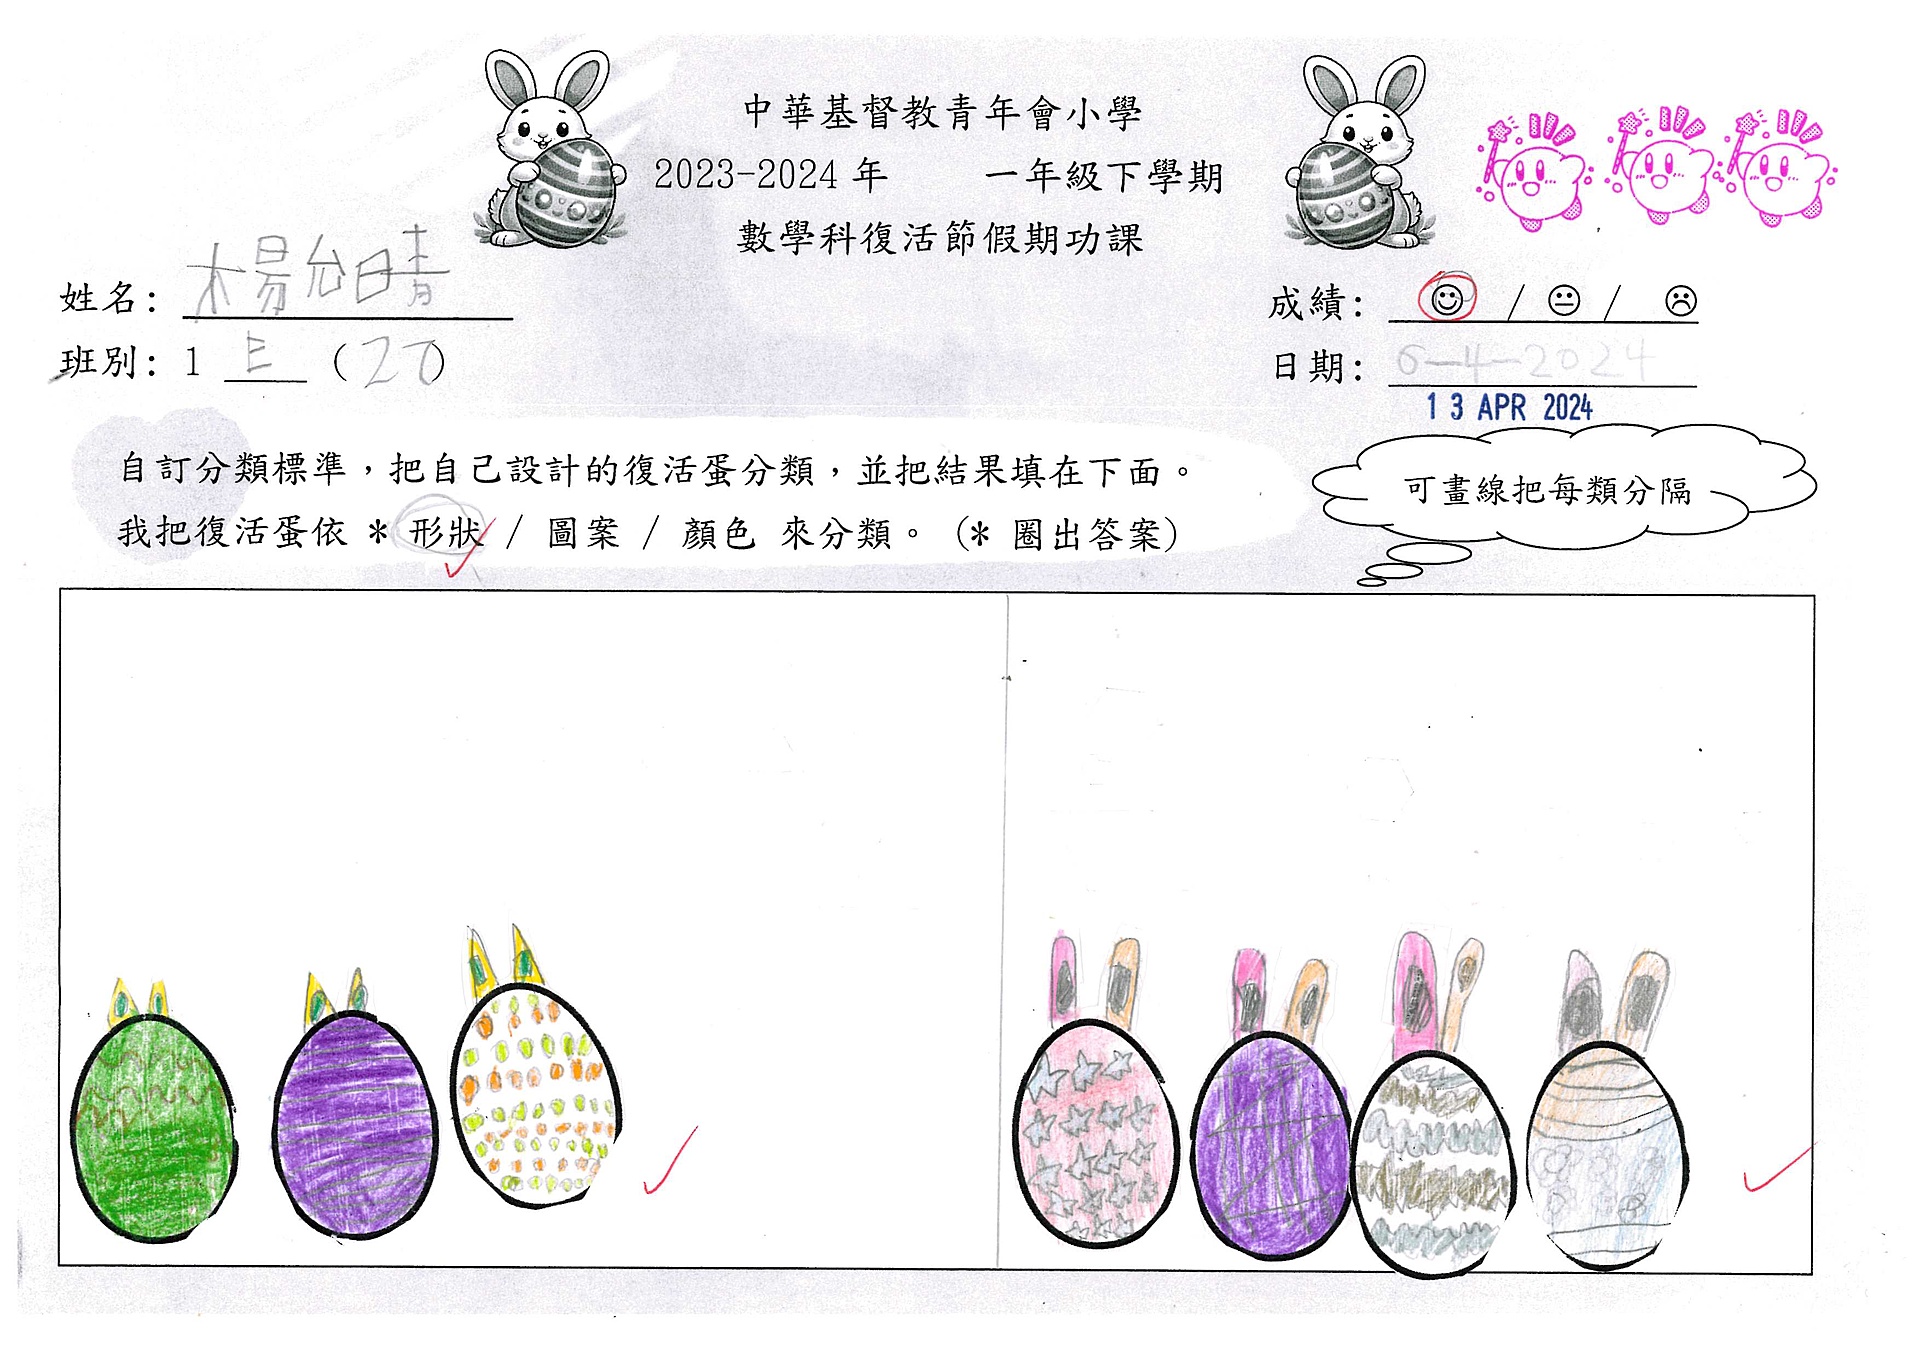 中華基督教青年會小學
2023-2024 年 一年級下學期
數學科復活節假期功課
姓名: 楊允晴
成績: ☺ / 😐 / ☹
班別: 1 E (20)
日期: 6-4-2024
13 APR 2024
自訂分類標準，把自己設計的復活蛋分類，並把結果填在下面。
我把復活蛋依 * 形狀 / 圖案 / 顏色 來分類。(* 圈出答案)
可畫線把每類分隔